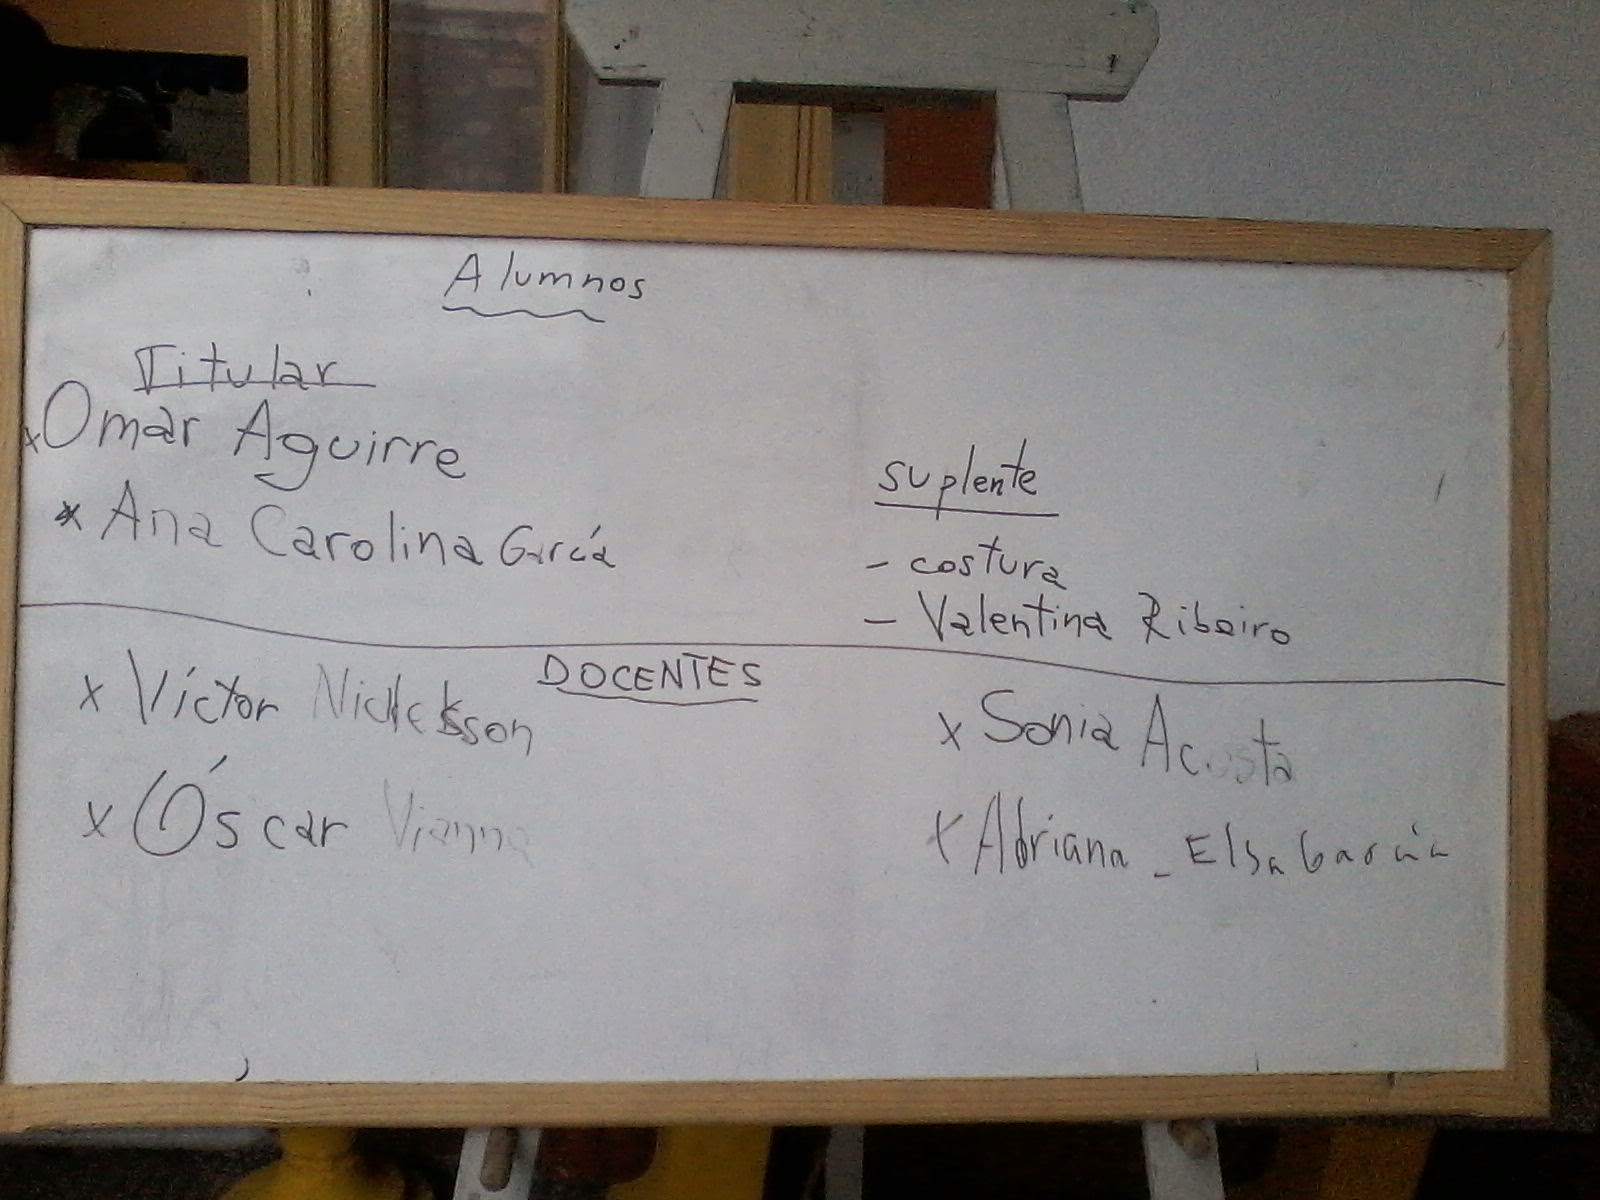 Alumnos
Titular
x Omar Aguirre
x Ana Carolina García
suplente
- costura
- Valentina Ribeiro
DOCENTES
x Víctor
x Óscar Vianna
x Sonia Acosta
x Adriana - Elsa García